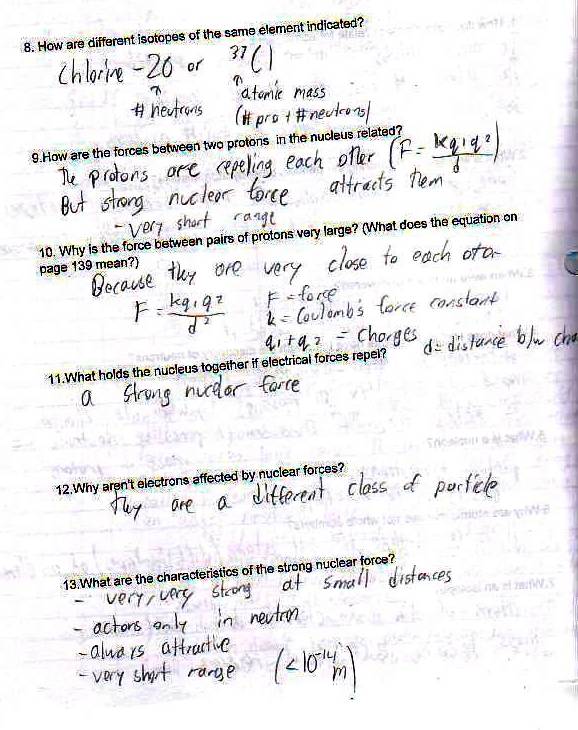 8. How are different isotopes of the same element indicated?
Chlorine - 20 or ³⁷Cl
# neutrons
atomic mass
(# pro + # neutrons)
9.How are the forces between two protons in the nucleus related?
The protons are repeling each other (F = kq₁q²/d)
But strong nuclear force attracts them
- very short range
10. Why is the force between pairs of protons very large? (What does the equation on
page 139 mean?)
Because they are very close to each
F = kq₁q₂/d²
F = force
k = Coulomb's force constant
q₁ + q₂ = Charges
d = distance b/w
11.What holds the nucleus together if electrical forces repel?
a strong nuclear force
12.Why aren't electrons affected by nuclear forces?
They are a different class of particle
13.What are the characteristics of the strong nuclear force?
- very, very strong at small distances
- actors only in neutron
- always attractive
- very short range (<10⁻¹⁴ m)